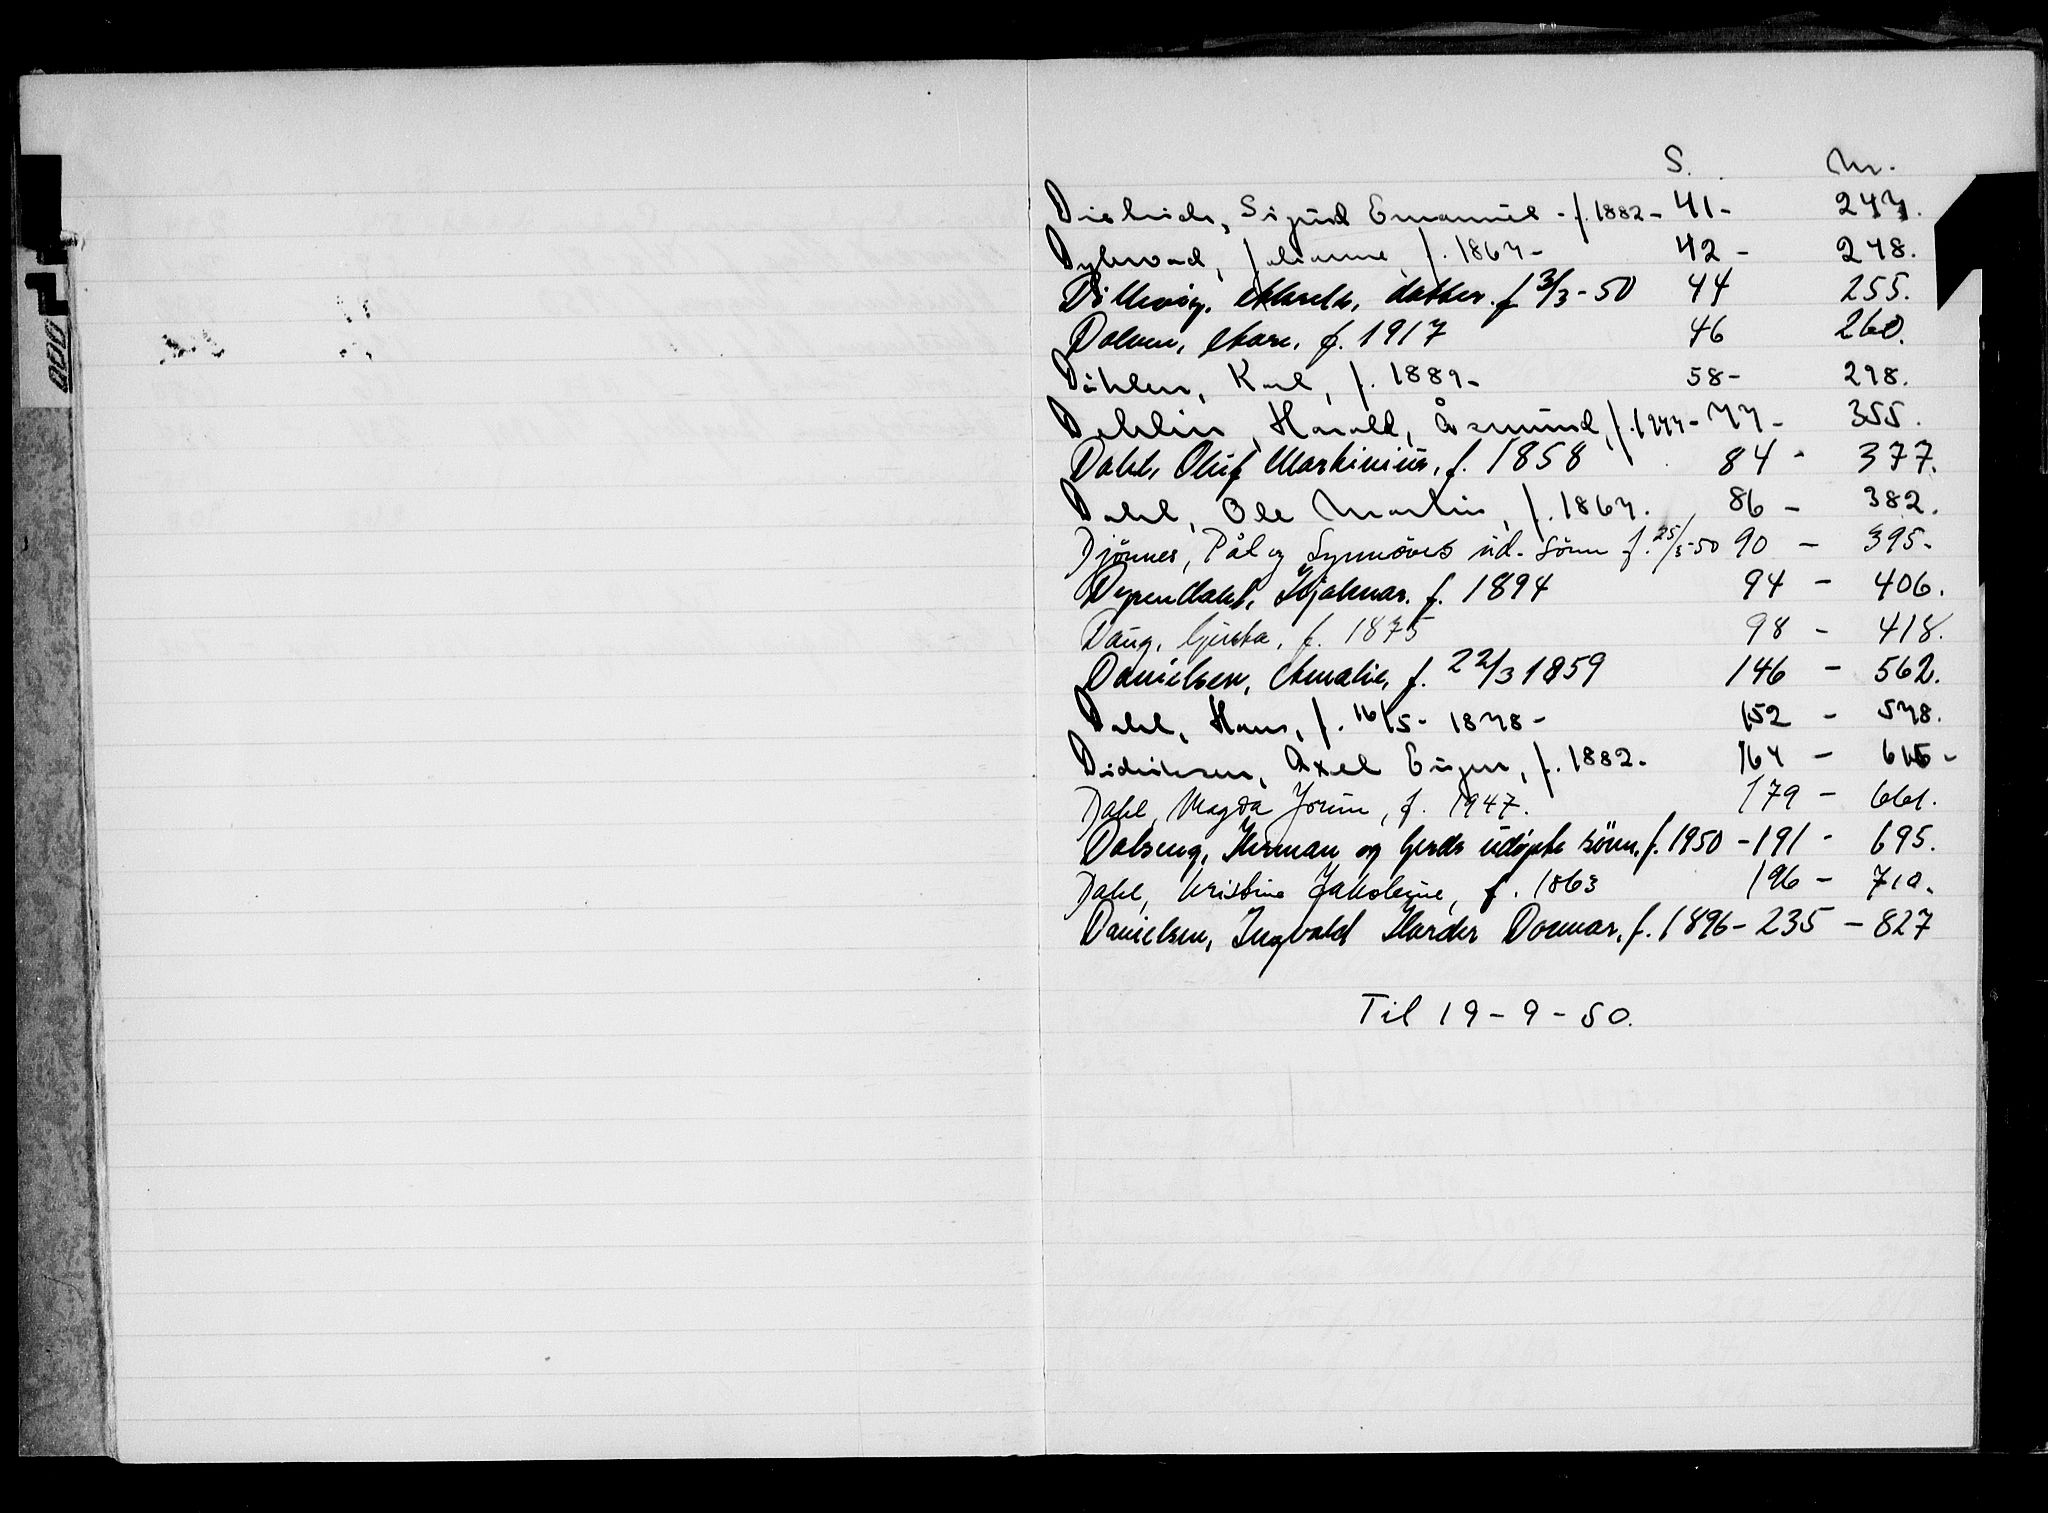 S. Nr.
Sigurd Emanuel - f. 1882 - 41 - 247.
Johanne, f. 1867 - 42 - 248.
datter. f 3/3-50 44 255.
Dolven, f. 1917 46 260.
Döhlen, Karl, f. 1889 - 58 - 298.
Dehlin, Harald, Åsmund, f. 77 - 355.
Dahl, Oluf Martinius, f. 1858 84 - 377.
Dahl, Ole Martin, f. 1867. 86 - 382.
Djönnes, Pål og Synnöves ud. sönn f. 25/3-50 90 - 395.
Hjalmar. f. 1894 94 - 406.
f. 1875 98 - 418.
Danielsen, Amalie, f. 22/3 1859 146 - 562.
Dahl, Hans, f. 16/5 - 1878 - 152 - 578.
Didriksen, Axel Eugen, f. 1882. 167 - 615 -
Dahl, Magda Jorun, f. 1947. 179 - 661.
Dalseng, Herman og Gerds udöpte sönn, f. 1950 - 191 - 695.
Dahl, Kristine Jakobine, f. 1863 196 - 710.
Danielsen, Ingvald Harder Dormar, f. 1896 - 235 - 827
Til 19-9-50.